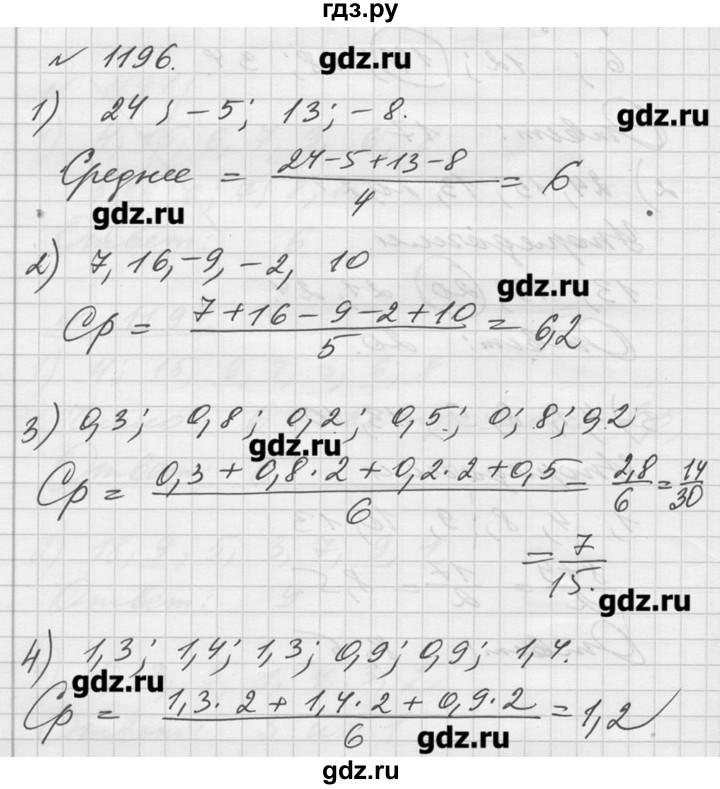 гдз.ру
№ 1196.
gdz.ru
1) 24; -5; 13; -8.
gdz.ru
Среднее = (24-5+13-8)/4 = 6
gdz.ru
2) 7, 16, -9, -2, 10
gdz.ru
Ср = (7+16-9-2+10)/5 = 6,2
3) 0,3; 0,8; 0,2; 0,5; 0; 8; 0,2
gdz.ru
Ср = (0,3 + 0,8·2 + 0,2·2 + 0,5)/6 = 2,8/6 = 14/30
= 7/15.
gdz.ru
4) 1,3; 1,4; 1,3; 0,9; 0,9; 1,4.
gdz.ru
Ср = (1,3·2 + 1,4·2 + 0,9·2)/6 = 1,2
gdz.ru
gdz.ru